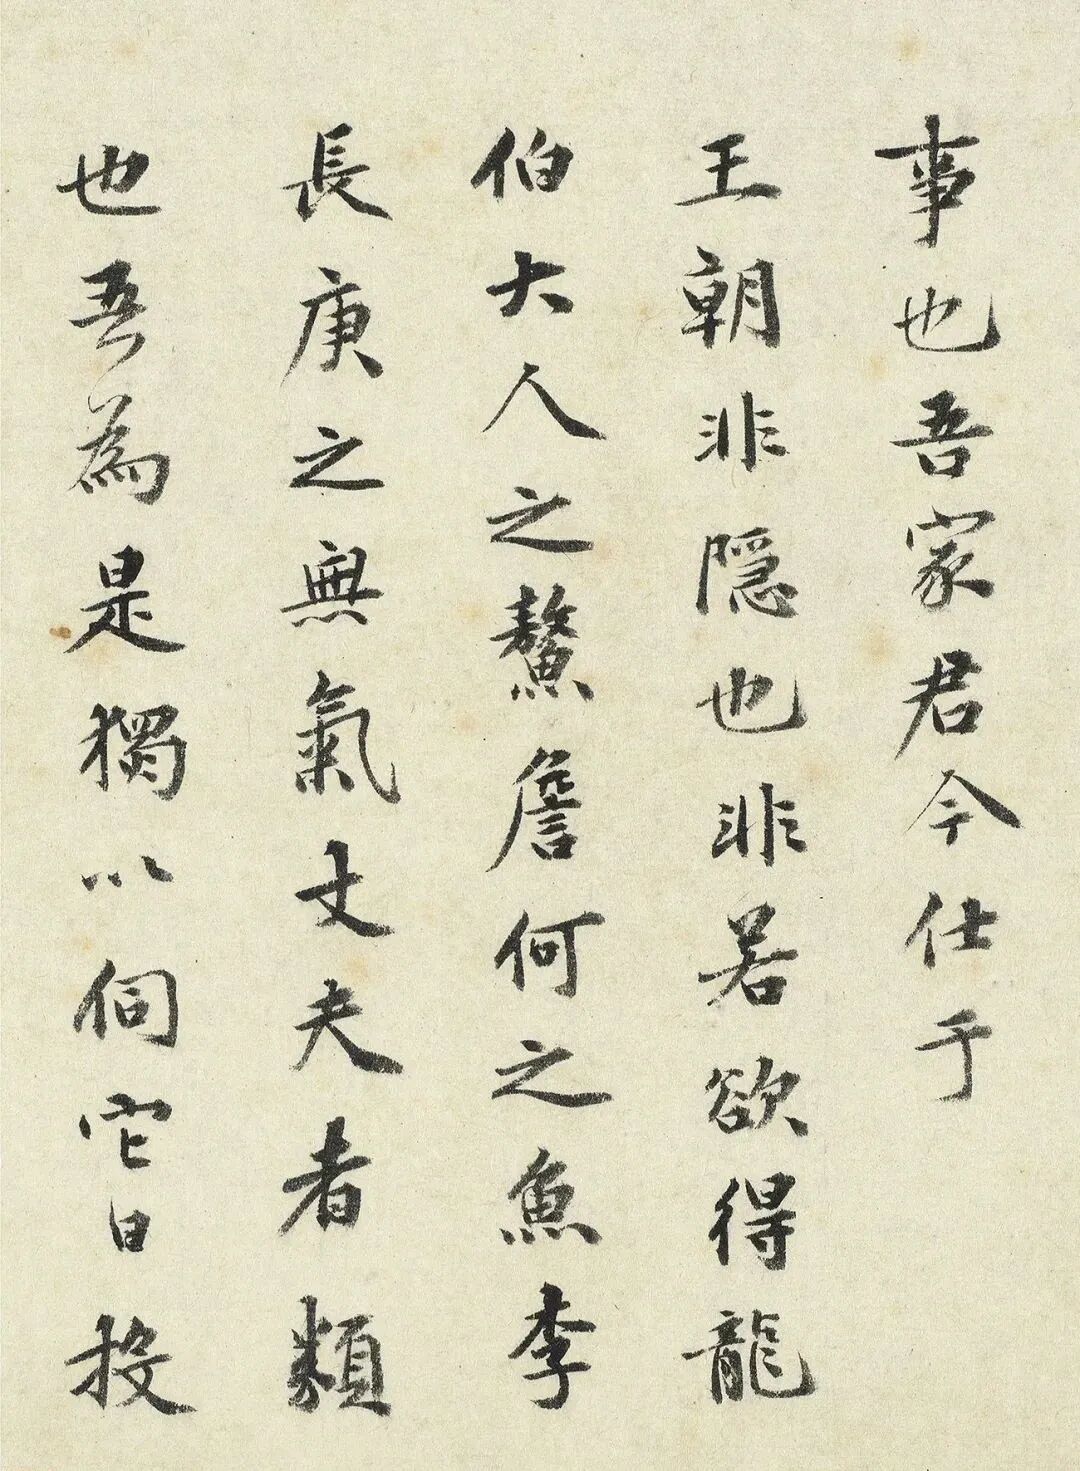 事也吾家君今仕于
王朝非隠也非若欲得龍
伯大人之鰲詹何之魚李
長庚之無氣丈夫者類
也吾為是獨以伺它日投